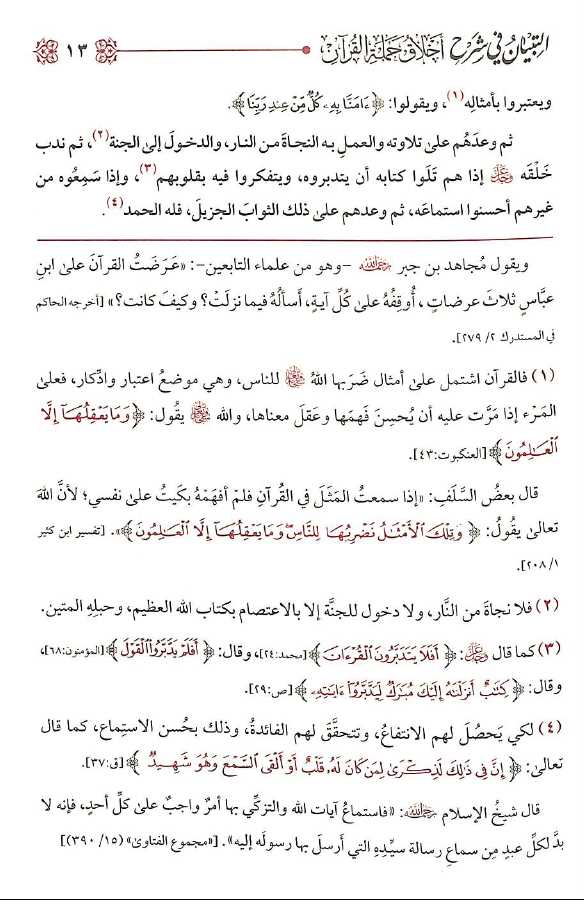 التبيان في شرح أخلاق حملة القرآن ١٣
ويعتبروا بأمثاله(١)، ويقولوا: ﴿ءَامَنَّا بِهِۦ كُلٌّ مِّنْ عِندِ رَبِّنَا﴾.
ثم وعدَهُم علىٰ تلاوته والعملِ به النجاةَ من النار، والدخولَ إلىٰ الجنة(٢)، ثم ندب
خَلْقَه ﷻ إذا هم تَلَوا كتابه أن يتدبروه، ويتفكروا فيه بقلوبهم(٣)، وإذا سَمِعُوه من
غيرهم أحسنوا استماعَه، ثم وعدهم علىٰ ذلك الثوابَ الجزيلَ، فله الحمد(٤).
ويقول مُجاهد بن جبر رحمه الله -وهو من علماء التابعين-: «عَرَضتُ القرآن علىٰ ابنِ
عبَّاس ثلاثَ عرضاتٍ، أُوقِفُه علىٰ كُلِّ آيةٍ، أسألُهُ فيما نزلَتْ؟ وكيفَ كانت؟» [أخرجه الحاكم
في المستدرك ٢/ ٢٧٩].
(١) فالقرآن اشتمل علىٰ أمثال ضَرَبها اللهُ ﷻ للناس، وهي موضعُ اعتبار وادِّكار، فعلىٰ
المَرْء إذا مَرَّت عليه أن يُحسِنَ فَهمَها وعَقلَ معناها، والله ﷻ يقُول: ﴿وَمَا يَعْقِلُهَآ إِلَّا
ٱلْعَـٰلِمُونَ﴾ [العنكبوت:٤٣].
قال بعضُ السَّلَفِ: «إذا سمعتُ المَثَلَ في القُرآنِ فلم أفهَمْهُ بكيتُ علىٰ نفسي؛ لأنَّ اللهَ
تعالىٰ يقُولُ: ﴿وَتِلْكَ ٱلْأَمْثَـٰلُ نَضْرِبُهَا لِلنَّاسِ وَمَا يَعْقِلُهَآ إِلَّا ٱلْعَـٰلِمُونَ﴾». [تفسير ابن كثير
١/ ٢٠٨].
(٢) فلا نجاةَ من النَّار، ولا دخول للجنَّة إلا بالاعتصام بكتاب الله العظيم، وحبلِه المتين.
(٣) كما قال ﷻ: ﴿أَفَلَا يَتَدَبَّرُونَ ٱلْقُرْءَانَ﴾ [محمد:٢٤]، وقال: ﴿أَفَلَمْ يَدَّبَّرُوا۟ ٱلْقَوْلَ﴾ [المؤمنون:٦٨]،
وقال: ﴿كِتَـٰبٌ أَنزَلْنَـٰهُ إِلَيْكَ مُبَـٰرَكٌ لِّيَدَّبَّرُوٓا۟ ءَايَـٰتِهِۦ﴾ [ص:٢٩].
(٤) لكي يَحصُلَ لهم الانتفاعُ، وتتحقَّقَ لهم الفائدةُ، وذلك بحُسن الاستِماع، كما قال
تعالىٰ: ﴿إِنَّ فِى ذَٰلِكَ لَذِكْرَىٰ لِمَن كَانَ لَهُۥ قَلْبٌ أَوْ أَلْقَى ٱلسَّمْعَ وَهُوَ شَهِيدٌ﴾ [ق:٣٧].
قال شيخُ الإسلام رحمه الله: «فاستماعُ آيات الله والتزكِّي بها أمرٌ واجبٌ علىٰ كلِّ أحدٍ، فإنه لا
بدَّ لكلِّ عبدٍ مِن سماعِ رسالة سيِّدِهِ التي أرسل بها رسولَه إليه». [«مجموع الفتاوىٰ» (١٥/ ٣٩٠)]